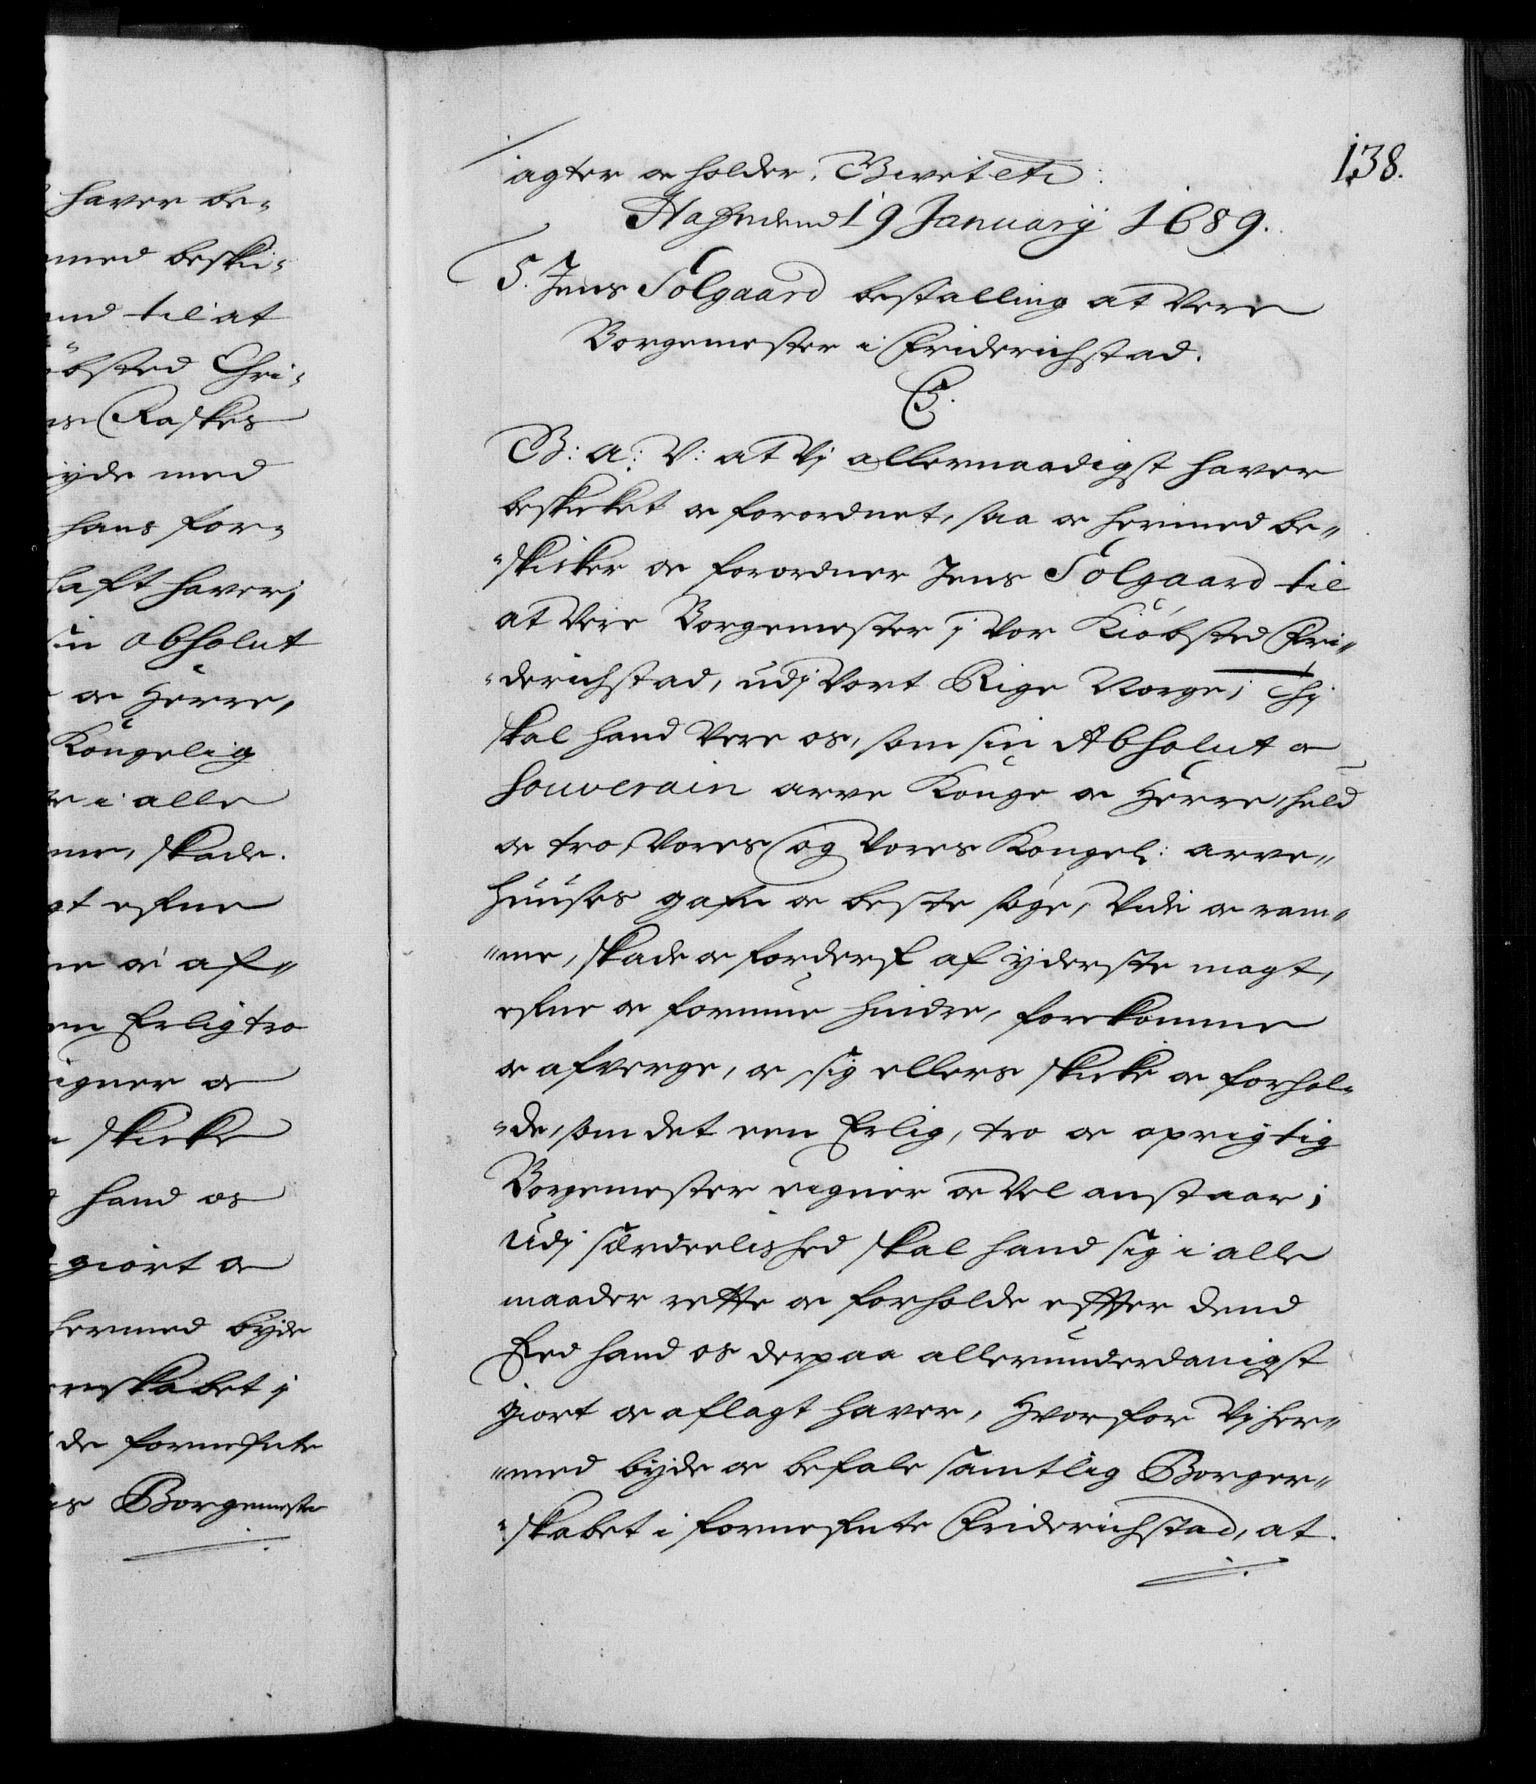 haver be-
med beski-
nd til at
øbsted Chri-
as Raskes
yde med
hans for-
haft haver;
sin absolut
oc Herre,
Kongelig
e i alle
me, skade.
gt efne
ne oc af-
en Erlig tro
igner oc
skicke
hand os
giort oc
hermed byde
erskabet i
de formefnte
s Borgemester
138.
agter oc holder. Givet etc:
Hafn dend 19 January 1689.
5. Jens Solgaard bestalling at Vere
Borgemester i Friderichstad.
C5.
G: A: V: at Vj allernaadigst haver
beskicket oc forordnet, saa oc hermed be-
-skicker oc forordner Jens Solgaard til
at Vere Borgemester j Vor Kiøbsted Fri-
-derichstad, udj Vort Rige Norge; Thj
skal hand Vere os, som sin Absolut oc
souverain arve Konge oc Herre, huld
oc tro, Vores og Vores Kongel: arve-
Huuses gafn oc beste søge, Vide oc ram-
-me, skade oc forderf af yderste magt,
efne oc formue hindre, forekomme
oc afverge, oc sig ellers skicke oc forhol-
-de, som det een Erlig, tro oc oprigtig
Borgemester eigner oc Vel anstaar;
Udj særdeelished skal hand sig i alle
maader rette oc forholde effter dend
Eed hand os derpaa allerunderdanigst
giort oc aflagt haver, Hvorfor Vj her-
-med byde oc befale samtlig Borger-
-skabet i formefnte Friderichstad, at